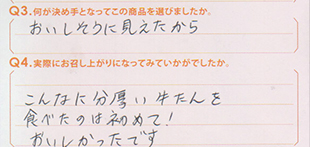 Q3.何が決め手となってこの商品を選びましたか。
おいしそうに見えたから
Q4.実際にお召し上がりになってみていかがでしたか。
こんなに分厚い牛たんを
食べたのは初めて!
おいしかったです